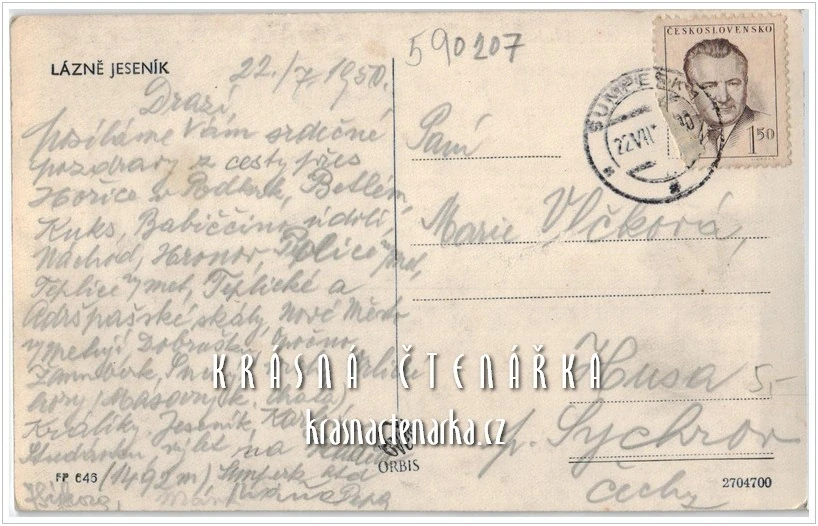 LÁZNĚ JESENÍK
22./7. 1950.
Drazí,
posíláme Vám srdečné
pozdravy z cesty přes
Hořice v Podkrk, Betlém,
Kuks, Babiččino údolí,
Náchod, Hronov, Teplice
Teplice n/ met, Teplické a
Adršpašské skály, Nové Město
n/ Metují Dobrušku, Opočno,
Žamberk,
hory (Masaryk. chata)
Králíky, Jeseník, Karlovu
Studánku výlet na
(1492 m) Šumperk atd
FP 646
590207
ČESKOSLOVENSKO
1,50
ŠUMPERK 1
22.VII
Paní
Marie Vlčková,
Husa 5,-
p. Sychrov
Čechy
KRÁSNÁ ČTENÁŘKA
krasnactenarka.cz
ORBIS
2704700